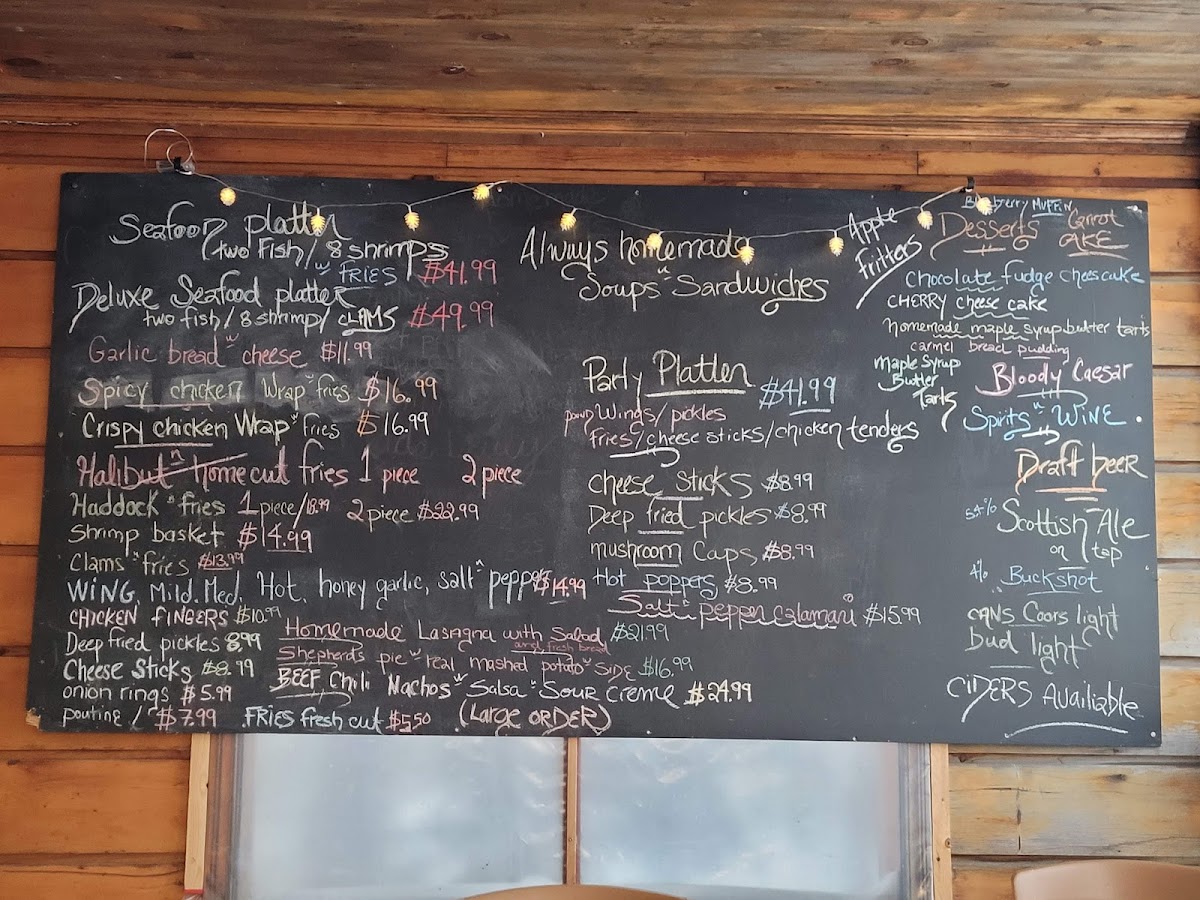 Seafood platter
two Fish / 8 shrimps
w FRIES $41.99
Deluxe Seafood platter
two fish / 8 shrimp / CLAMS $49.99
Garlic bread w cheese $11.99
Spicy chicken Wrap w fries $16.99
Crispy chicken Wrap w fries $16.99
Halibut n homecut fries 1 piece 2 piece
Haddock n fries 1 piece / 18.99 2 piece $22.99
Shrimp basket $14.99
Clams n fries $13.99
WiNG, Mild. Med. Hot. honey garlic, salt n pepper $14.99
CHICKEN fiNGERS $10.99
Deep fried pickles 8.99
Cheese Sticks $8.99
onion rings $5.99
poutine / $7.99
Homemade Lasagna with Salad $21.99
and fresh bread
Shepherds pie w real mashed potato w SiDE $16.99
BEEF Chili Nachos w Salsa n Sour creme $24.99
FRiES fresh cut $5.50 (Large ORDER)
Always homemade
Soups n Sandwiches
Party Platter $41.99
Wings / pickles
fries / cheese sticks / chicken tenders
cheese Sticks $8.99
Deep fried pickles $8.99
mushroom Caps, $8.99
Hot poppers $8.99
Salt n pepper calamari $15.99
Apple
fritters
Blueberry MUFFIN
Desserts
Carrot
CAKE
Chocolate fudge cheescake
CHERRY cheese cake
Homemade maple syrup butter tarts
carmel bread pudding
Maple Syrup
Butter
Tarts
Bloody Caesar
Spirits n WiNE
Draft beer
5.4% Scottish Ale
on tap
4% Buckshot
CANS Coors light
Bud light
CiDERS Availiable